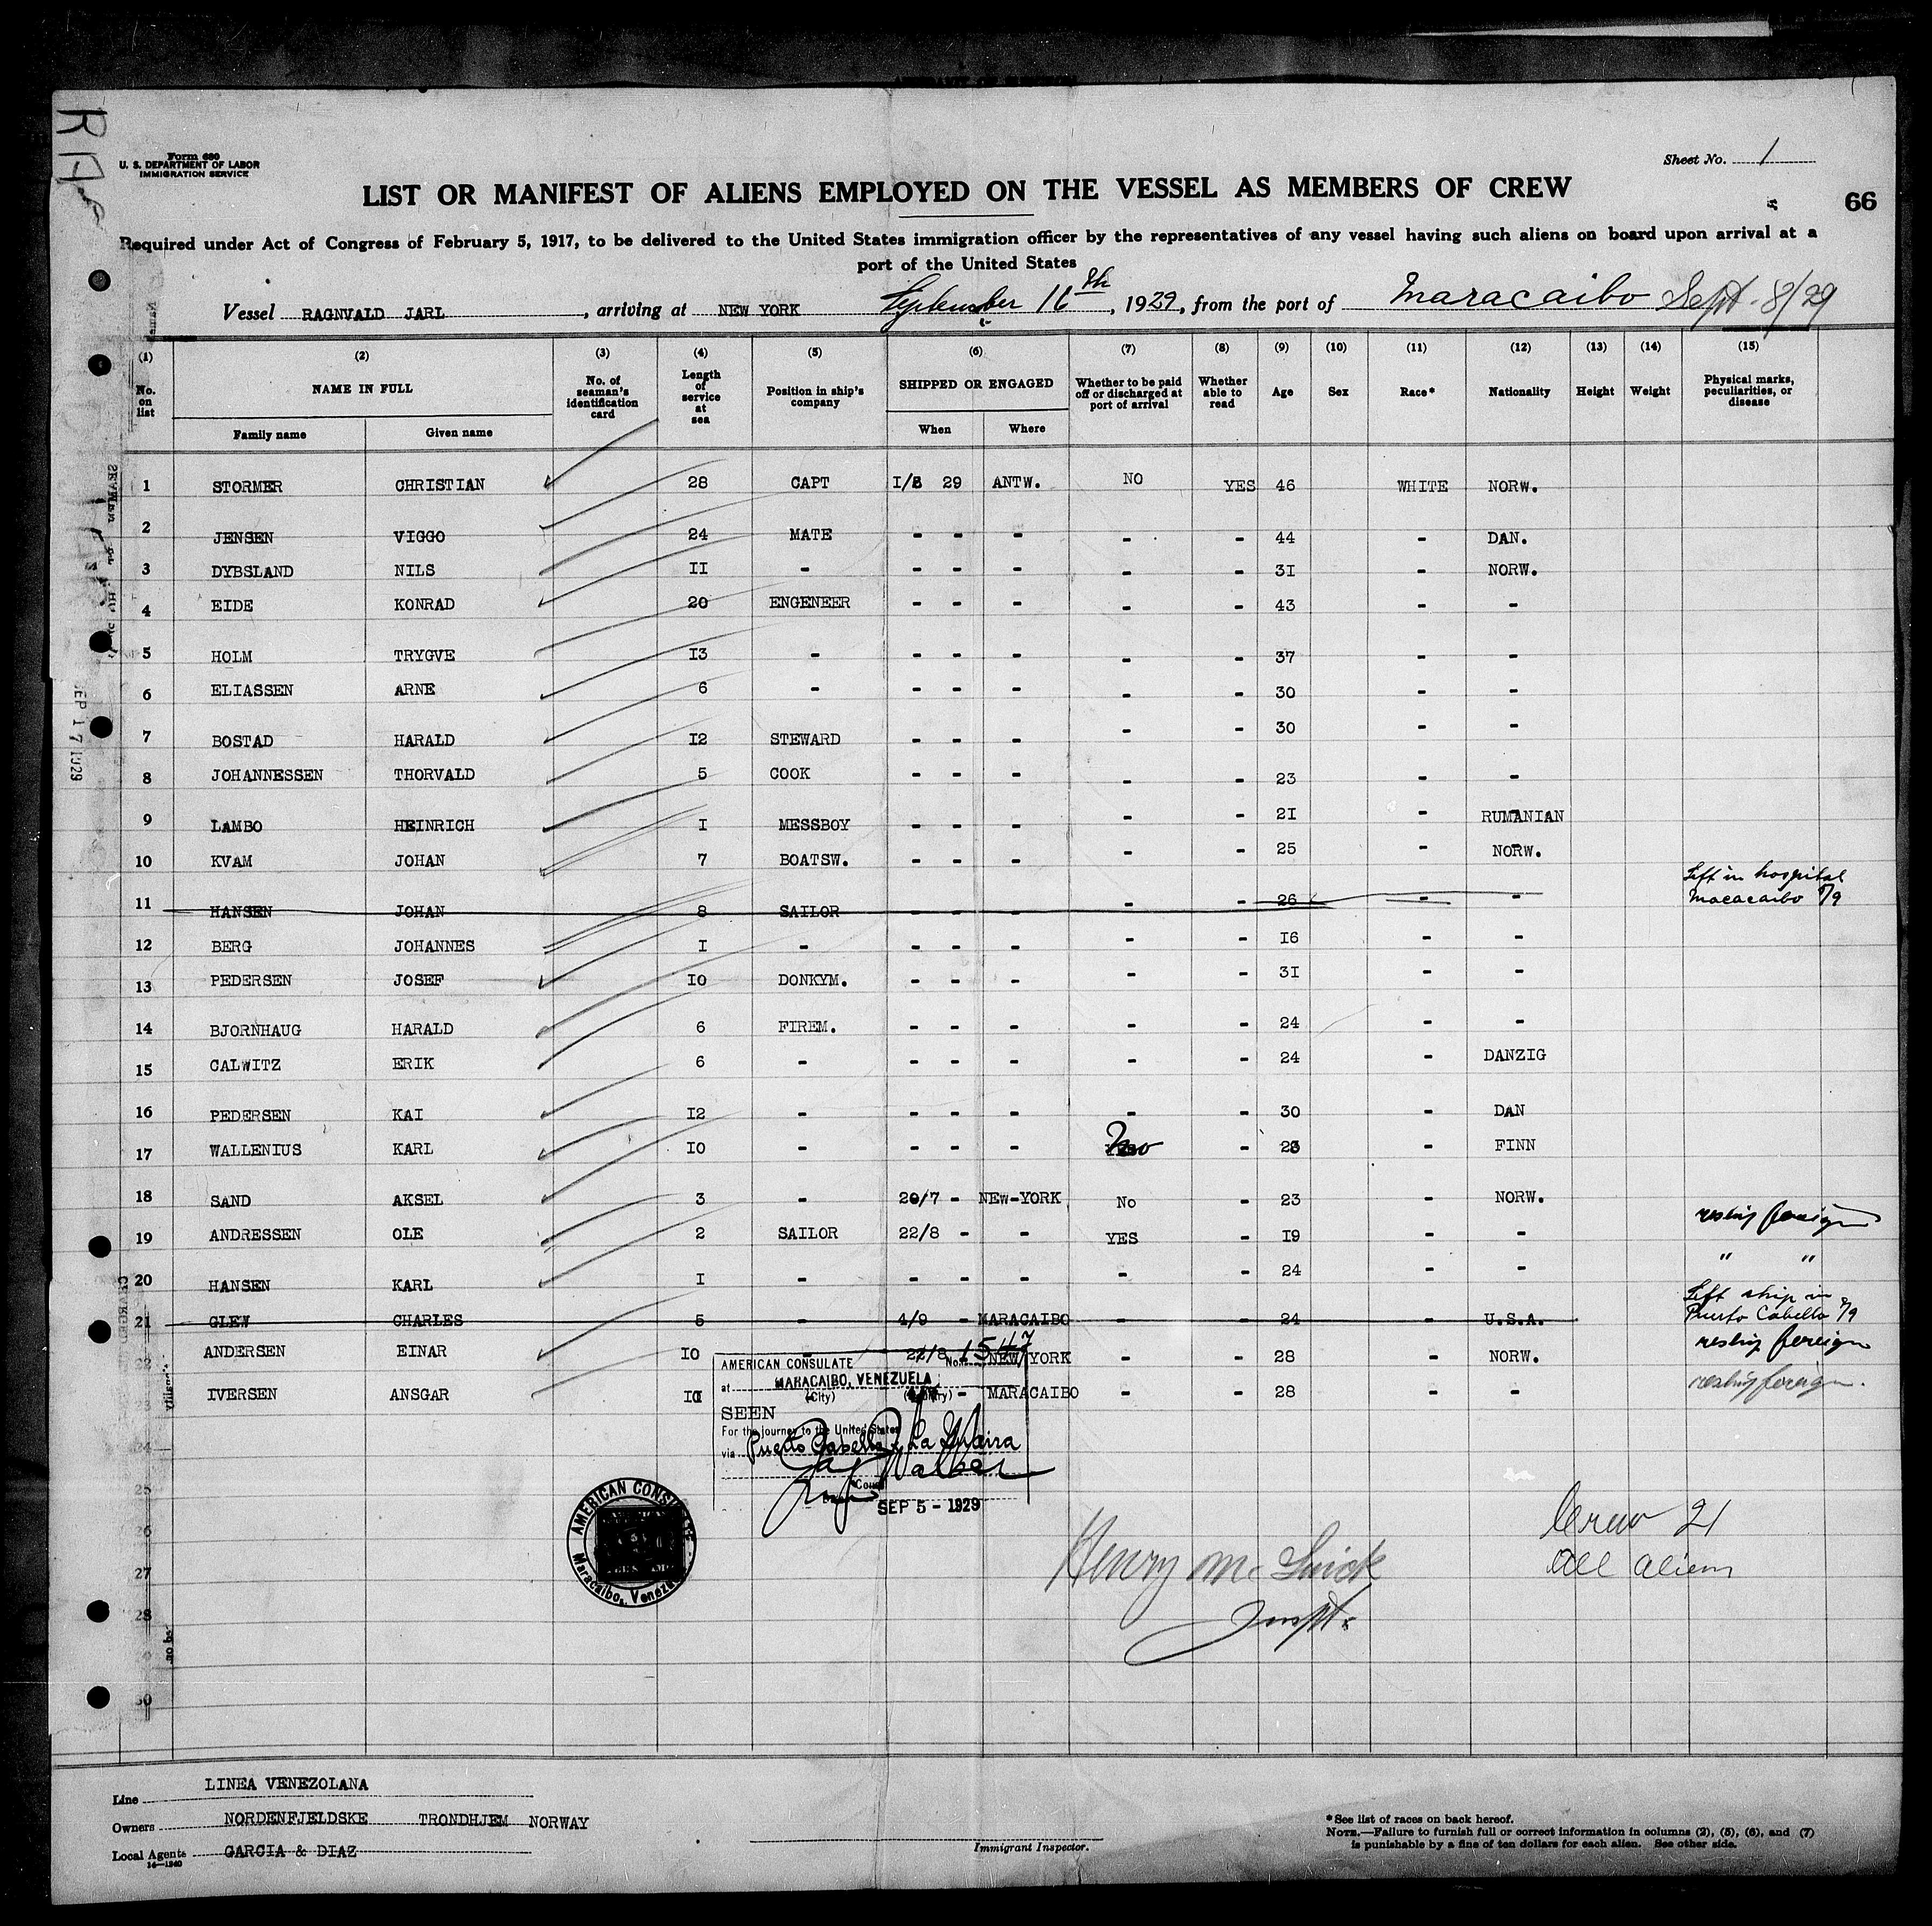 Form 680
U. S. DEPARTMENT OF LABOR
IMMIGRATION SERVICE
Sheet No. 1
LIST OR MANIFEST OF ALIENS EMPLOYED ON THE VESSEL AS MEMBERS OF CREW
66
Required under Act of Congress of February 5, 1917, to be delivered to the United States immigration officer by the representatives of any vessel having such aliens on board upon arrival at a
port of the United States
Vessel RAGNVALD JARL, arriving at NEW YORK September 16th, 1929, from the port of Maracaibo Sept. 8/29
(1) (2) (3) (4) (5) (6) (7) (8) (9) (10) (11) (12) (13) (14) (15)
No. on list NAME IN FULL Family name Given name No. of seaman's identification card Length of service at sea Position in ship's company SHIPPED OR ENGAGED When Where Whether to be paid off or discharged at port of arrival Whether able to read Age Sex Race* Nationality Height Weight Physical marks, peculiarities, or disease
1 STORMER CHRISTIAN 28 CAPT I/8 29 ANTW. NO YES 46 WHITE NORW.
2 JENSEN VIGGO 24 MATE - - - - - 44 - DAN.
3 DYBSLAND NILS II - - - - - - 3I - NORW.
4 EIDE KONRAD 20 ENGENEER - - - - - 43 - -
5 HOLM TRYGVE I3 - - - - - - 37 - -
6 ELIASSEN ARNE 6 - - - - - - 30 - -
7 BOSTAD HARALD I2 STEWARD - - - - - 30 - -
8 JOHANNESSEN THORVALD 5 COOK - - - - - 23 - -
9 LAMBO HEINRICH I MESSBOY - - - - - 2I - RUMANIAN
10 KVAM JOHAN 7 BOATSW. - - - - - 25 - NORW.
11 HANSEN JOHAN 8 SAILOR - - - - - 26 - - Left in hospital Maracaibo 8/9
12 BERG JOHANNES I - - - - - - I6 - -
13 PEDERSEN JOSEF I0 DONKYM. - - - - - 3I - -
14 BJORNHAUG HARALD 6 FIREM. - - - - - 24 - -
15 CALWITZ ERIK 6 - - - - - - 24 - DANZIG
16 PEDERSEN KAI I2 - - - - - - 30 - DAN
17 WALLENIUS KARL I0 - - - - No - 23 - FINN
18 SAND AKSEL 3 - 20/7 - NEW-YORK No - 23 - NORW.
19 ANDRESSEN OLE 2 SAILOR 22/8 - - YES - I9 - - reship foreign
20 HANSEN KARL I - - - - - - 24 - - " "
21 GLEW CHARLES 5 - 4/9 - MARACAIBO - - 24 - U.S.A. Left ship in Puerto Cabello 8/9
22 ANDERSEN EINAR I0 - 22/8 NEW YORK - - 28 - NORW. reship foreign
23 IVERSEN ANSGAR - MARACAIBO - - 28 - - reship foreign.
AMERICAN CONSULATE No. 1547
at MARACAIBO, VENEZUELA
(City) (Country)
SEEN
For the journey to the United States
via Puerto Cabello & La Guaira
SEP 5 - 1929
AMERICAN CONSULATE
Maracaibo, Venezuela
24
25
26
27
28
29
30
Crew 21
all aliens
Henry Mc
Inspt.
SEP 17 1929
Line LINEA VENEZOLANA
Owners NORDENFJELDSKE TRONDHJEM NORWAY
Local Agents GARCIA & DIAZ
14—1240
Immigrant Inspector.
*See list of races on back hereof.
NOTE.—Failure to furnish full or correct information in columns (2), (5), (6), and (7)
is punishable by a fine of ten dollars for each alien. See other side.